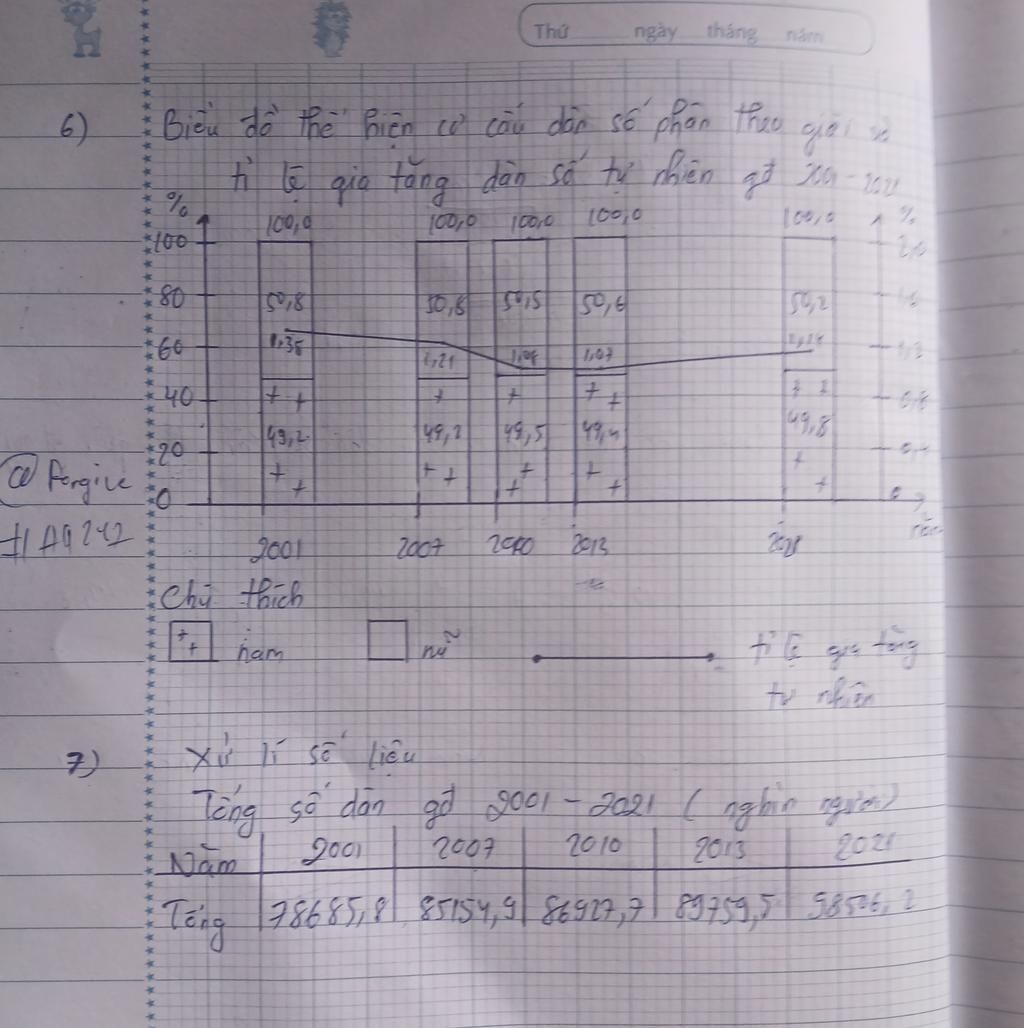 Thứ ngày tháng năm
6) Biểu đồ thể hiện cơ cấu dân số phân theo giới và
tỉ lệ gia tăng dân số tự nhiên gđ 2001 - 2021
% %
100,0 100,0 100,0 100,0 100,0
100 2,0
80 50,8 50,8 50,5 50,6 50,2 1,6
60 1,35 1,21 1,07 1,2
40 0,8
20 49,2 49,2 49,5 49,4 49,8 0,4
0 0
@ Forgive
năm
2001 2007 2010 2013 2021
Chú thích
nam nữ tỉ lệ gia tăng
tự nhiên
7) Xử lí số liệu
Tổng số dân gđ 2001 - 2021 (nghìn người)
Năm 2001 2007 2010 2013 2021
Tổng 78685,8 85154,9 86927,7 89759,5